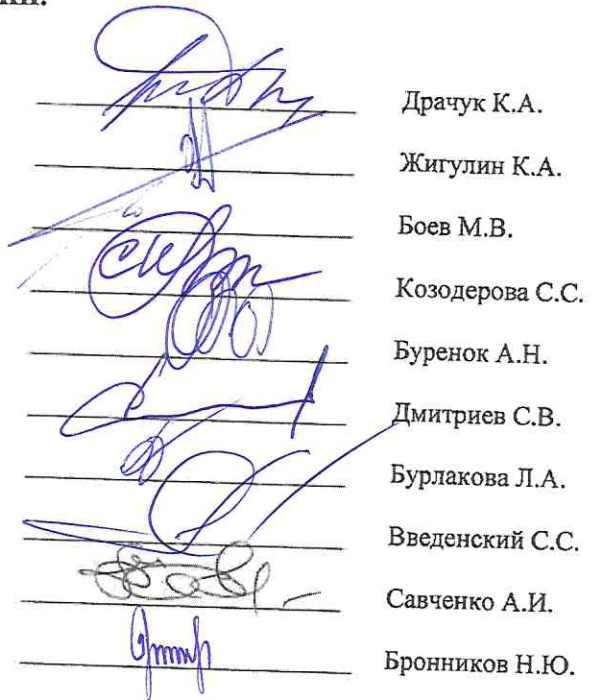 Драчук К.А.
Жигулин К.А.
Боев М.В.
Козодерова С.С.
Буренок А.Н.
Дмитриев С.В.
Бурлакова Л.А.
Введенский С.С.
Савченко А.И.
Бронников Н.Ю.